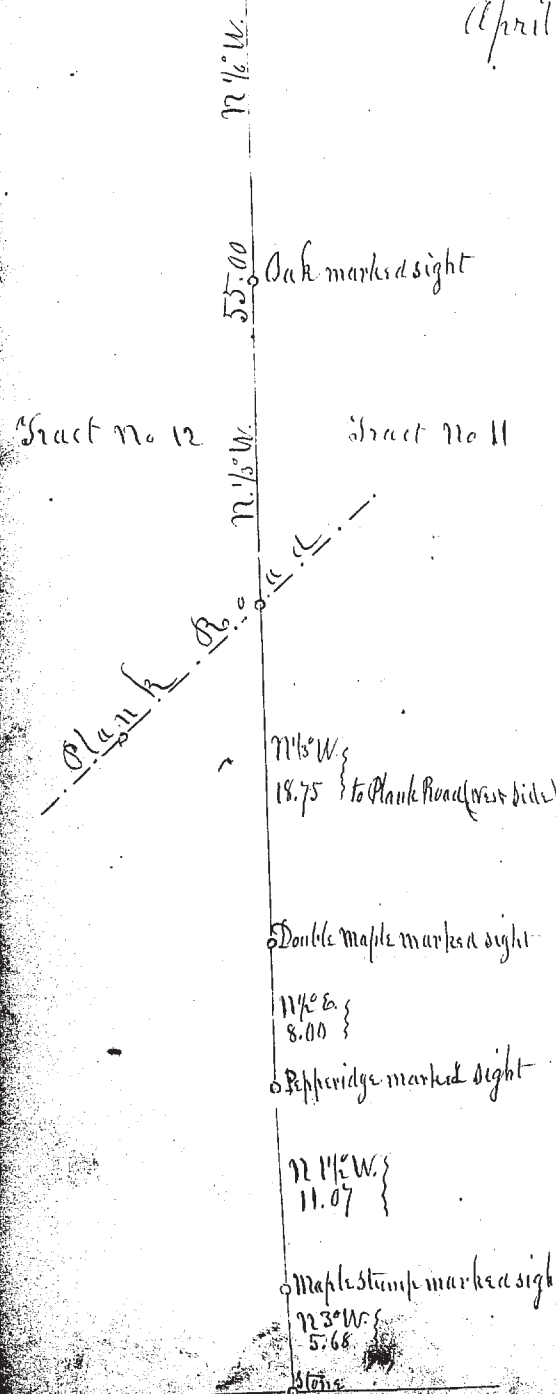 April
N 1/6° W.
55.00
Oak marked sight
Tract No 12
Tract No 11
N. 1/3° W.
Plank Road
N 1/3° W.
18.75 to Plank Road (West Side)
Double Maple marked sight
N 1/2° E.
8.00
Pepperidge marked sight
N 1 1/2° W.
11.07
Maple Stump marked sigh
N 3° W.
5.68
Stone